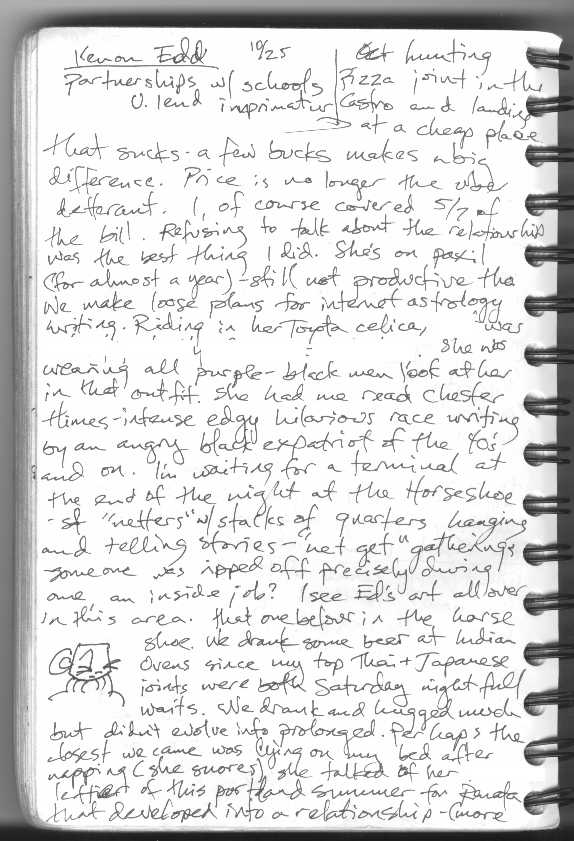 Kenon Edd 10/25
Partnerships w/ schools
U. lend imprimatur
Oct hunting
Pizza joint in the
Castro and landing
at a cheap place
that sucks - a few bucks makes a big
difference. Price is no longer the
detterant. I, of course covered 5/7 of
the bill. Refusing to talk about the relationship
was the best thing I did. She's on paxil
(for almost a year) - still not productive tho
We make loose plans for internet astrology
writing. Riding in her Toyota celica,
she was
wearing all purple - black men look at her
in that outfit. She had me read Chester
Himes - intense edgy hilarious race writing
by an angry black expatriot of the 40s
and on. I'm waiting for a terminal at
the end of the night at the Horseshoe
- of "netters" w/ stacks of quarters hanging
and telling stories - "net get" gatherings
- someone was ripped off precisely during
one, an inside job? I see Ed's art all over
in this area. that one before in the horse
shoe. We drank some beer at Indian
Ovens since my top Thai + Japanese
joints were both Saturday night full
waits. We drank and hugged much
but didn't evolve into prolonged. Perhaps the
closest we came was lying on my bed after
napping (she snores) she talked of her
of this portland summer for
that developed into a relationship - (more